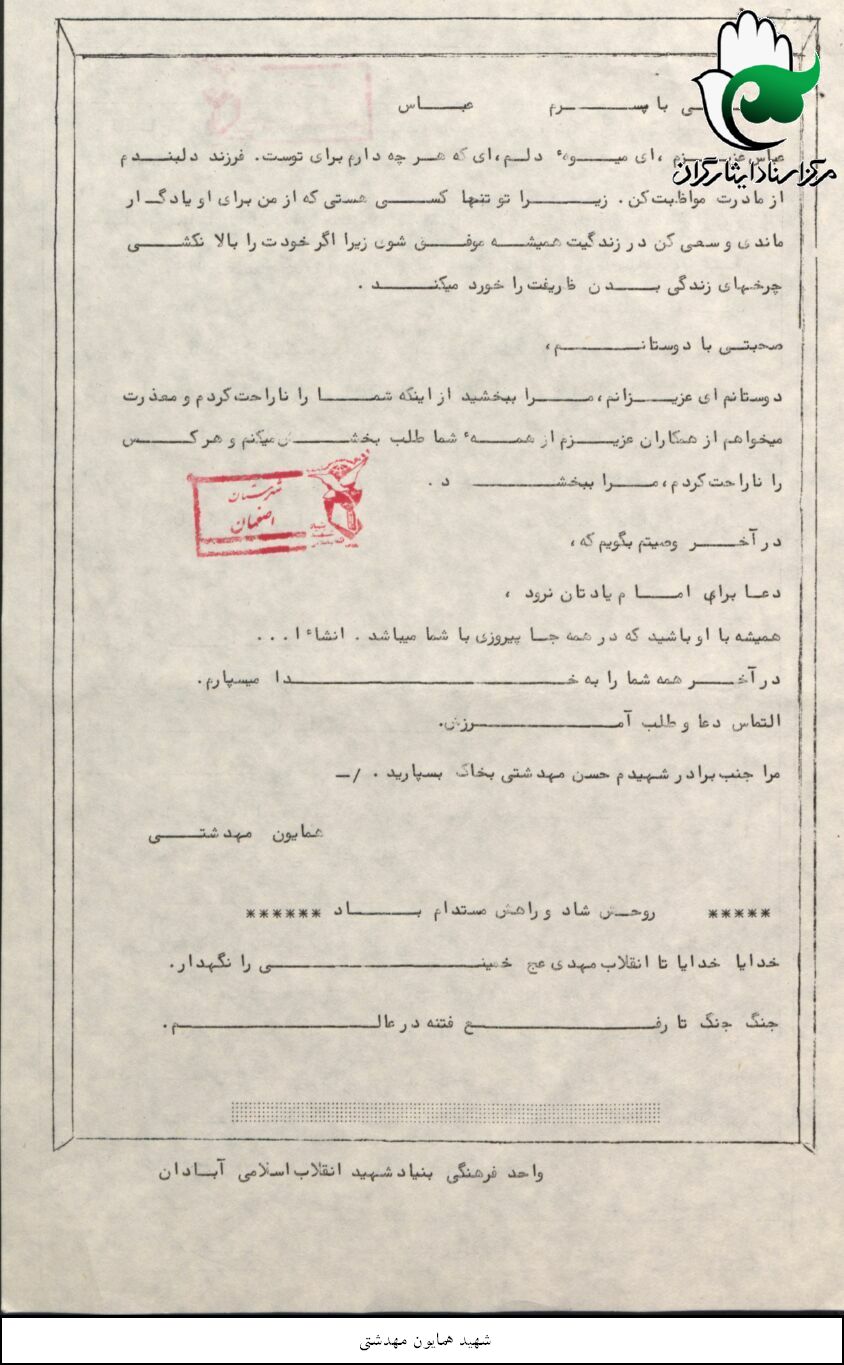 مرکز اسناد ایثارگران
با پسرم عباس
عباس عزیزم ،ای میوهٔ دلم،ای که هر چه دارم برای توست. فرزند دلبندم
از مادرت مواظبت کن. زیرا تو تنها کسی هستی که از من برای او یادگار
ماندی و سعی کن در زندگیت همیشه موفق شوی زیرا اگر خودت را بالا نکشی
چرخهای زندگی بدن ظریفت را خورد میکند .
صحبتی با دوستانم،
دوستانم ای عزیزانم، مرا ببخشید از اینکه شما را ناراحت کردم و معذرت
میخواهم از همکاران عزیزم از همهٔ شما طلب بخشش میکنم و هر کس
را ناراحت کردم، مرا ببخشد .
شهرستان
اصفهان
در آخر وصیتم بگویم که،
دعا برای امام یادتان نرود ،
همیشه با او باشید که در همه جا پیروزی با شما میباشد . انشاءا...
در آخر همه شما را به خدا میسپارم.
التماس دعا و طلب آمرزش.
مرا جنب برادر شهیدم حسن مهدشتی بخاک بسپارید . /—
همایون مهدشتی
***** روحش شاد و راهش مستدام باد ******
خدایا خدایا تا انقلاب مهدی عج خمینی را نگهدار.
جنگ جنگ تا رفع فتنه در عالم.
واحد فرهنگی بنیاد شهید انقلاب اسلامی آبادان
شهید همایون مهدشتی